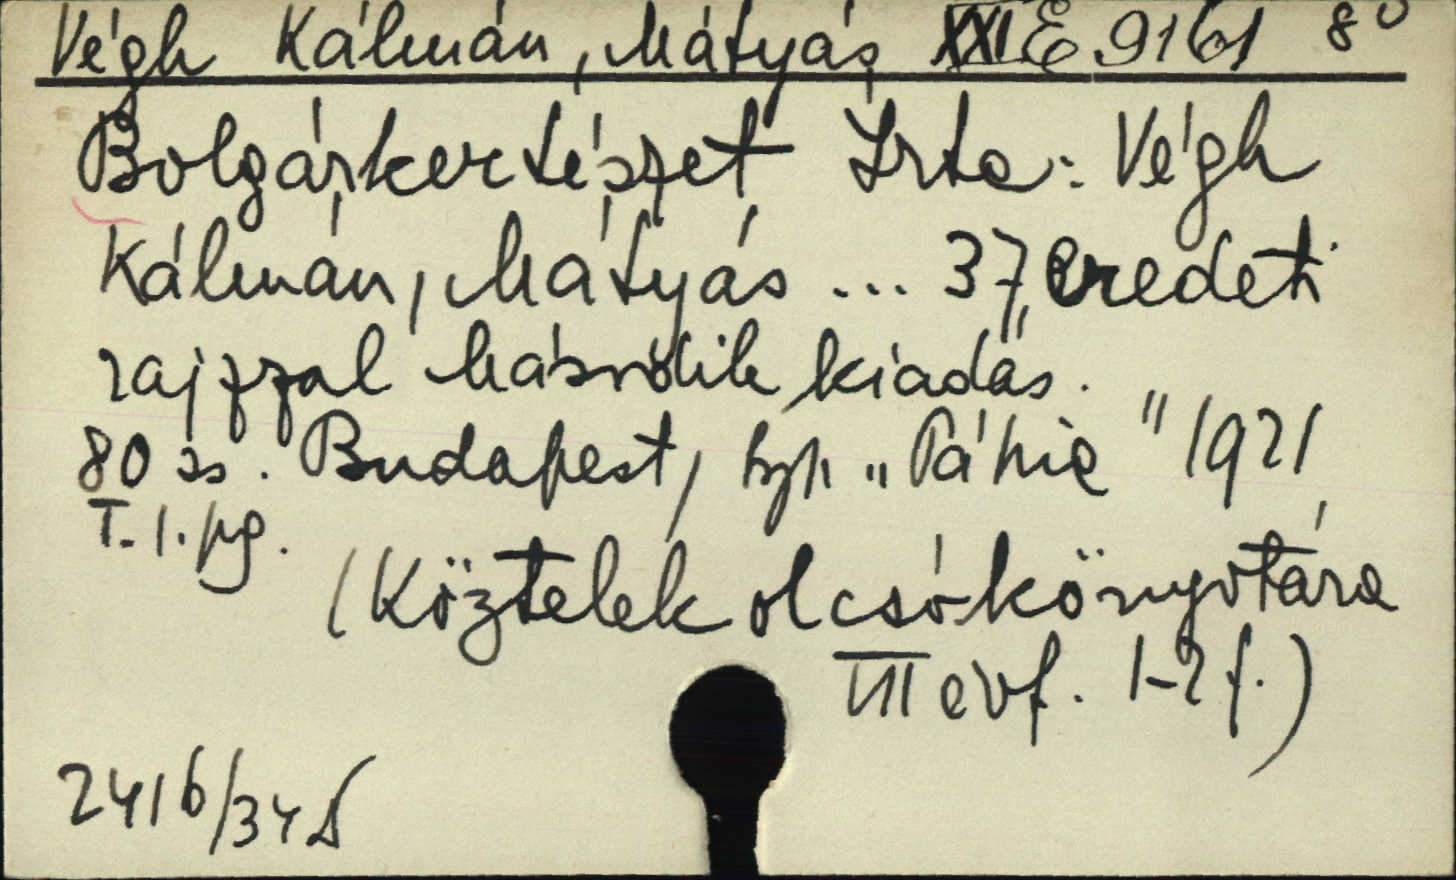 Végh Kálmán, Mátyás XXI E 9161 8°
Bolgárkertészet Irta: Végh
Kálmán, Mátyás ... 37 eredeti
rajzzal Második kiadás.
80 ss. Budapest, typ. „Pátria" 1921
T. 1. pg.
(Köztelek olcsó könyvtára
VII évf. 1-2 f.)
2416/34